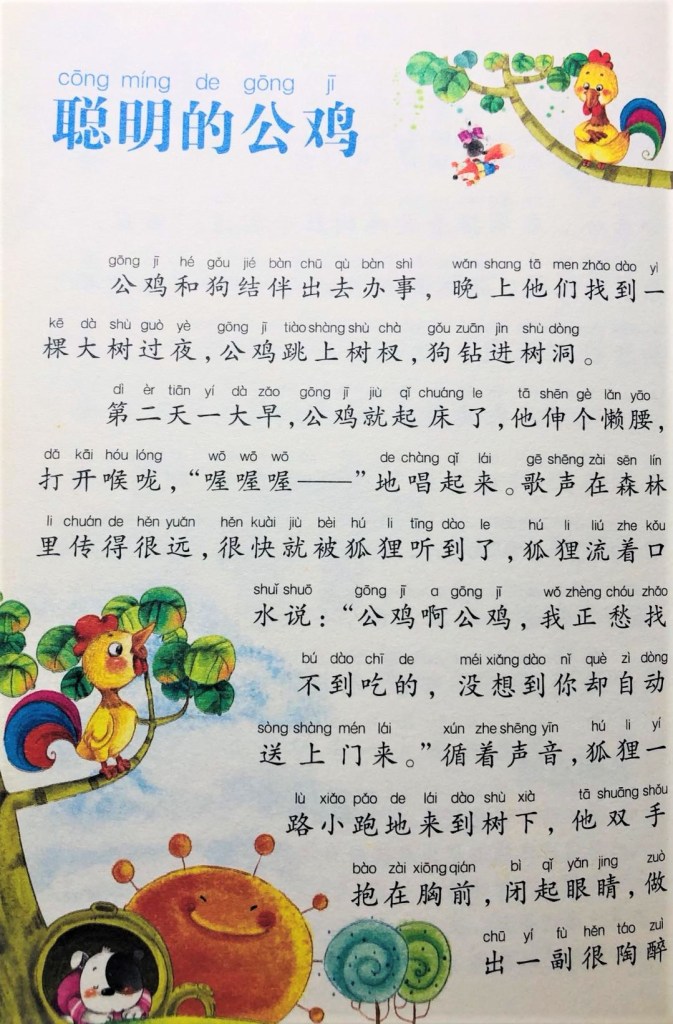 cōng míng de gōng jī
聪明的公鸡
gōng jī hé gǒu jié bàn chū qù bàn shì wǎn shang tā men zhǎo dào yì
公鸡和狗结伴出去办事，晚上他们找到一
kē dà shù guò yè gōng jī tiào shàng shù chà gǒu zuān jìn shù dòng
棵大树过夜，公鸡跳上树杈，狗钻进树洞。
dì èr tiān yí dà zǎo gōng jī jiù qǐ chuáng le tā shēn gè lǎn yāo
第二天一大早，公鸡就起床了，他伸个懒腰，
dǎ kāi hóu lóng wō wō wō de chàng qǐ lái gē shēng zài sēn lín
打开喉咙，“喔喔喔——”地唱起来。歌声在森林
li chuán de hěn yuǎn hěn kuài jiù bèi hú li tīng dào le hú li liú zhe kǒu
里传得很远，很快就被狐狸听到了，狐狸流着口
shuǐ shuō gōng jī a gōng jī wǒ zhèng chóu zhǎo
水说：“公鸡啊公鸡，我正愁找
bú dào chī de méi xiǎng dào nǐ què zì dòng
不到吃的，没想到你却自动
sòng shàng mén lái xún zhe shēng yīn hú li yí
送上门来。”循着声音，狐狸一
lù xiǎo pǎo de lái dào shù xià tā shuāng shǒu
路小跑地来到树下，他双手
bào zài xiōng qián bì qǐ yǎn jing zuò
抱在胸前，闭起眼睛，做
chū yí fù hěn táo zuì
出一副很陶醉